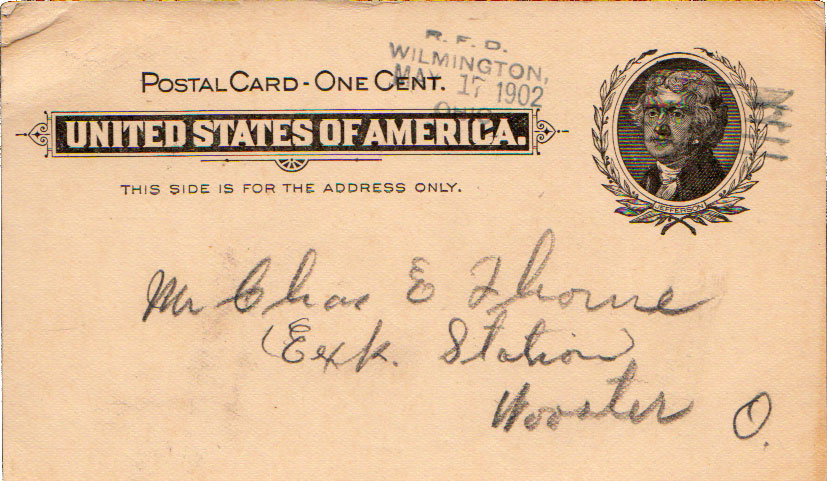 R. F. D.
WILMINGTON,
MAY 17 1902
OHIO
POSTAL CARD - ONE CENT.
UNITED STATES OF AMERICA.
THIS SIDE IS FOR THE ADDRESS ONLY.
JEFFERSON
Mr Chas E Thorne
(Exk. Station)
Wooster O.